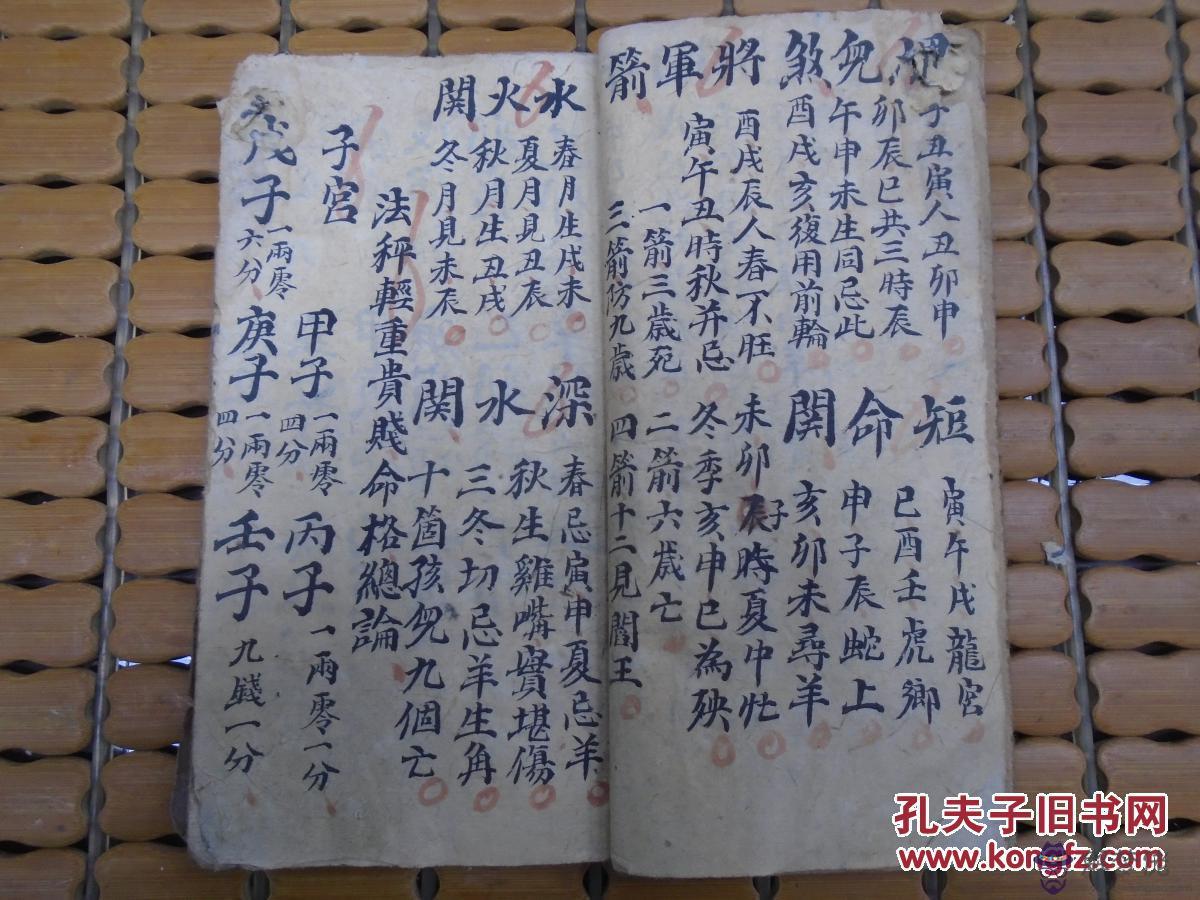 児煞
子丑寅人丑卯申
卯辰巳共三時辰
午申未生同忌此
酉戌亥復用前輪
短命関
寅午戌龍宮
巳酉壬虎鄉
申子辰蛇上
亥卯未尋羊
將軍箭
酉戌辰人春不旺
未卯子時夏中忙
寅午丑時秋并忌
冬季亥申巳為殃
一箭三歲死
二箭六歲亡
三箭防九歲
四箭十二見閻王
水火関
春月生戌未
夏月見丑辰
秋月生丑戌
冬月見未辰
深水関
春忌寅申夏忌羊
秋生雞嘴實堪傷
三冬切忌羊生角
十箇孩児九個亡
法秤輕重貴賤命格總論
子宮
甲子 一兩零四分
丙子 一兩零一分
戊子 一兩零六分
庚子 一兩零四分
壬子 九錢一分
孔夫子旧书网
www.kongfz.com